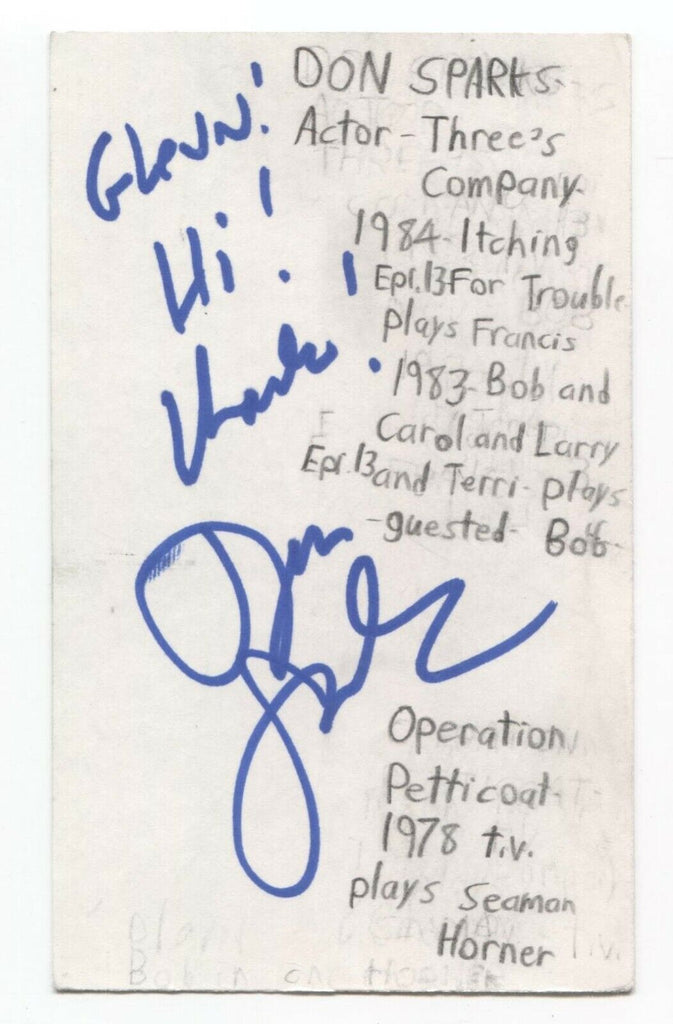 Glenn!
Hi!
Thanks!
Don Sparks
DON SPARKS-
Actor - Three's
Company-
1984- Itching
Epi.13 For Trouble-
plays Francis
1983- Bob and
Carol and Larry
Epi.13 and Terri- plays
-guested- Bob-
Operation
Petticoat-
1978 t.v.
plays Seaman
Horner